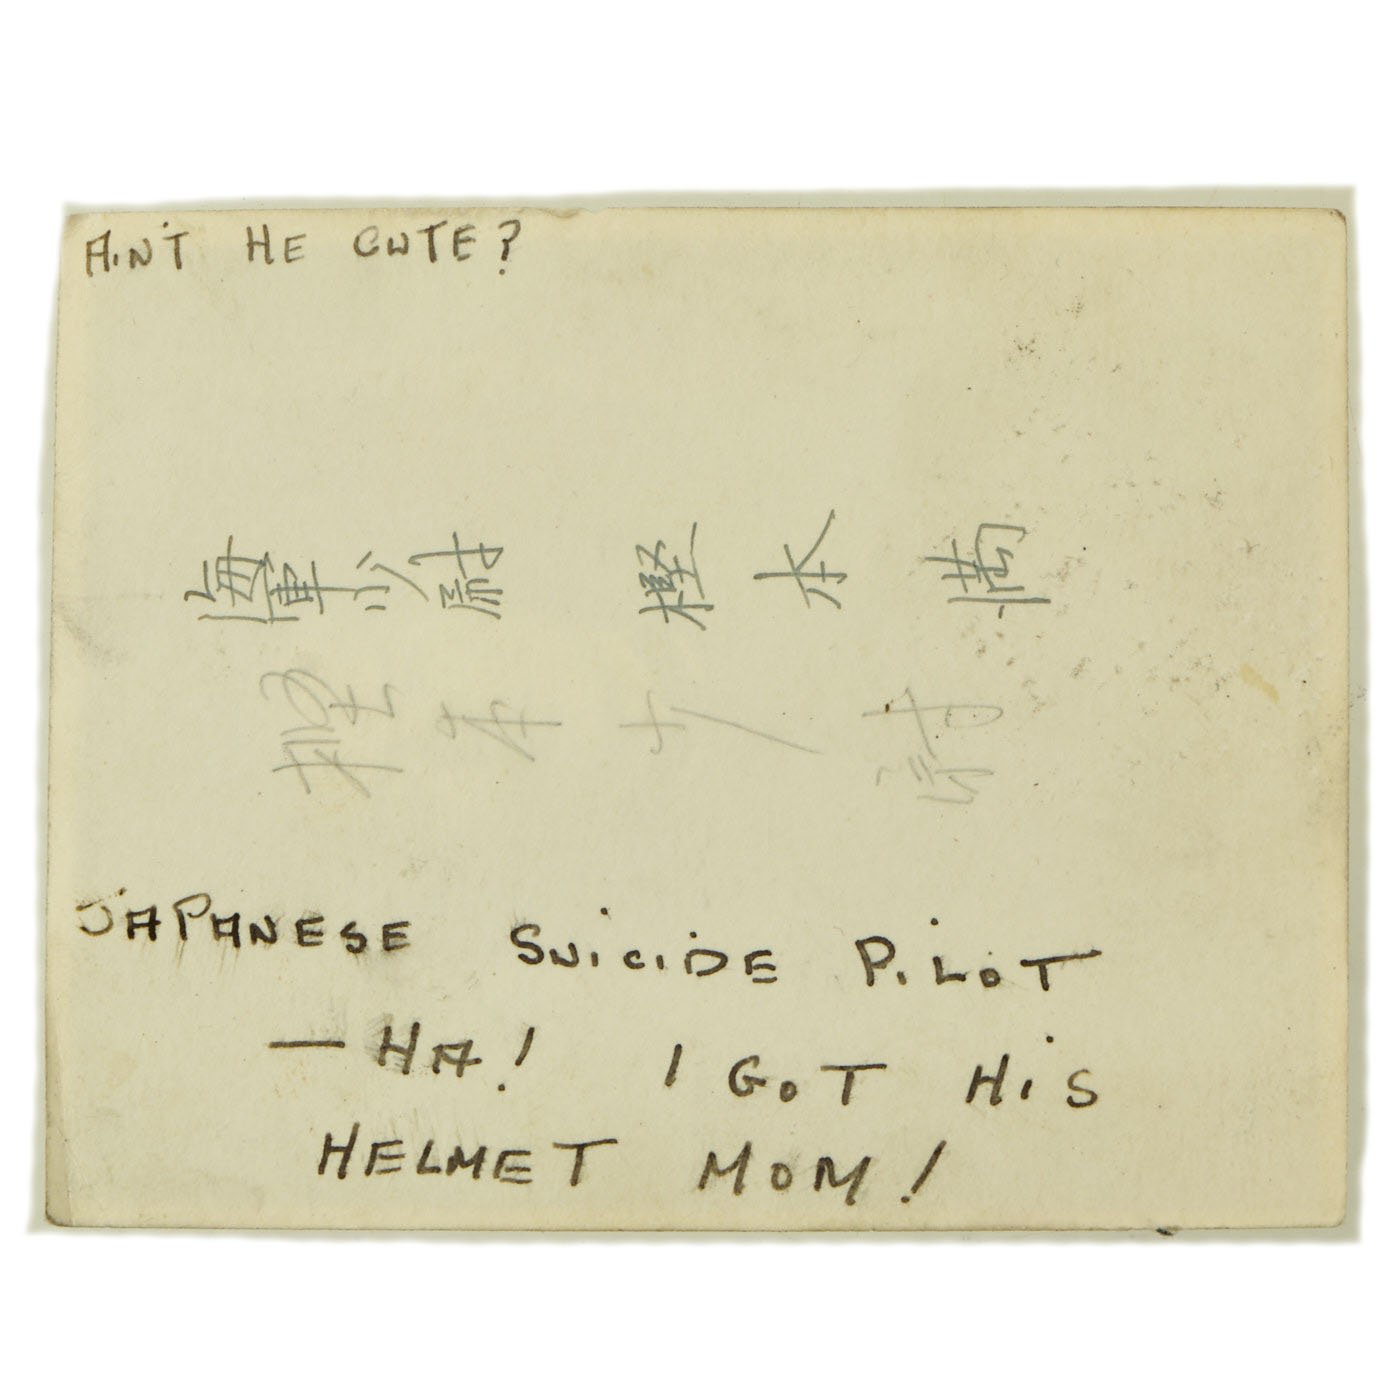 AIN'T HE CUTE?
海軍少尉 樫本 満
樫本少尉
JAPANESE SUICIDE PILOT
— HA! I GOT HIS
HELMET MOM!